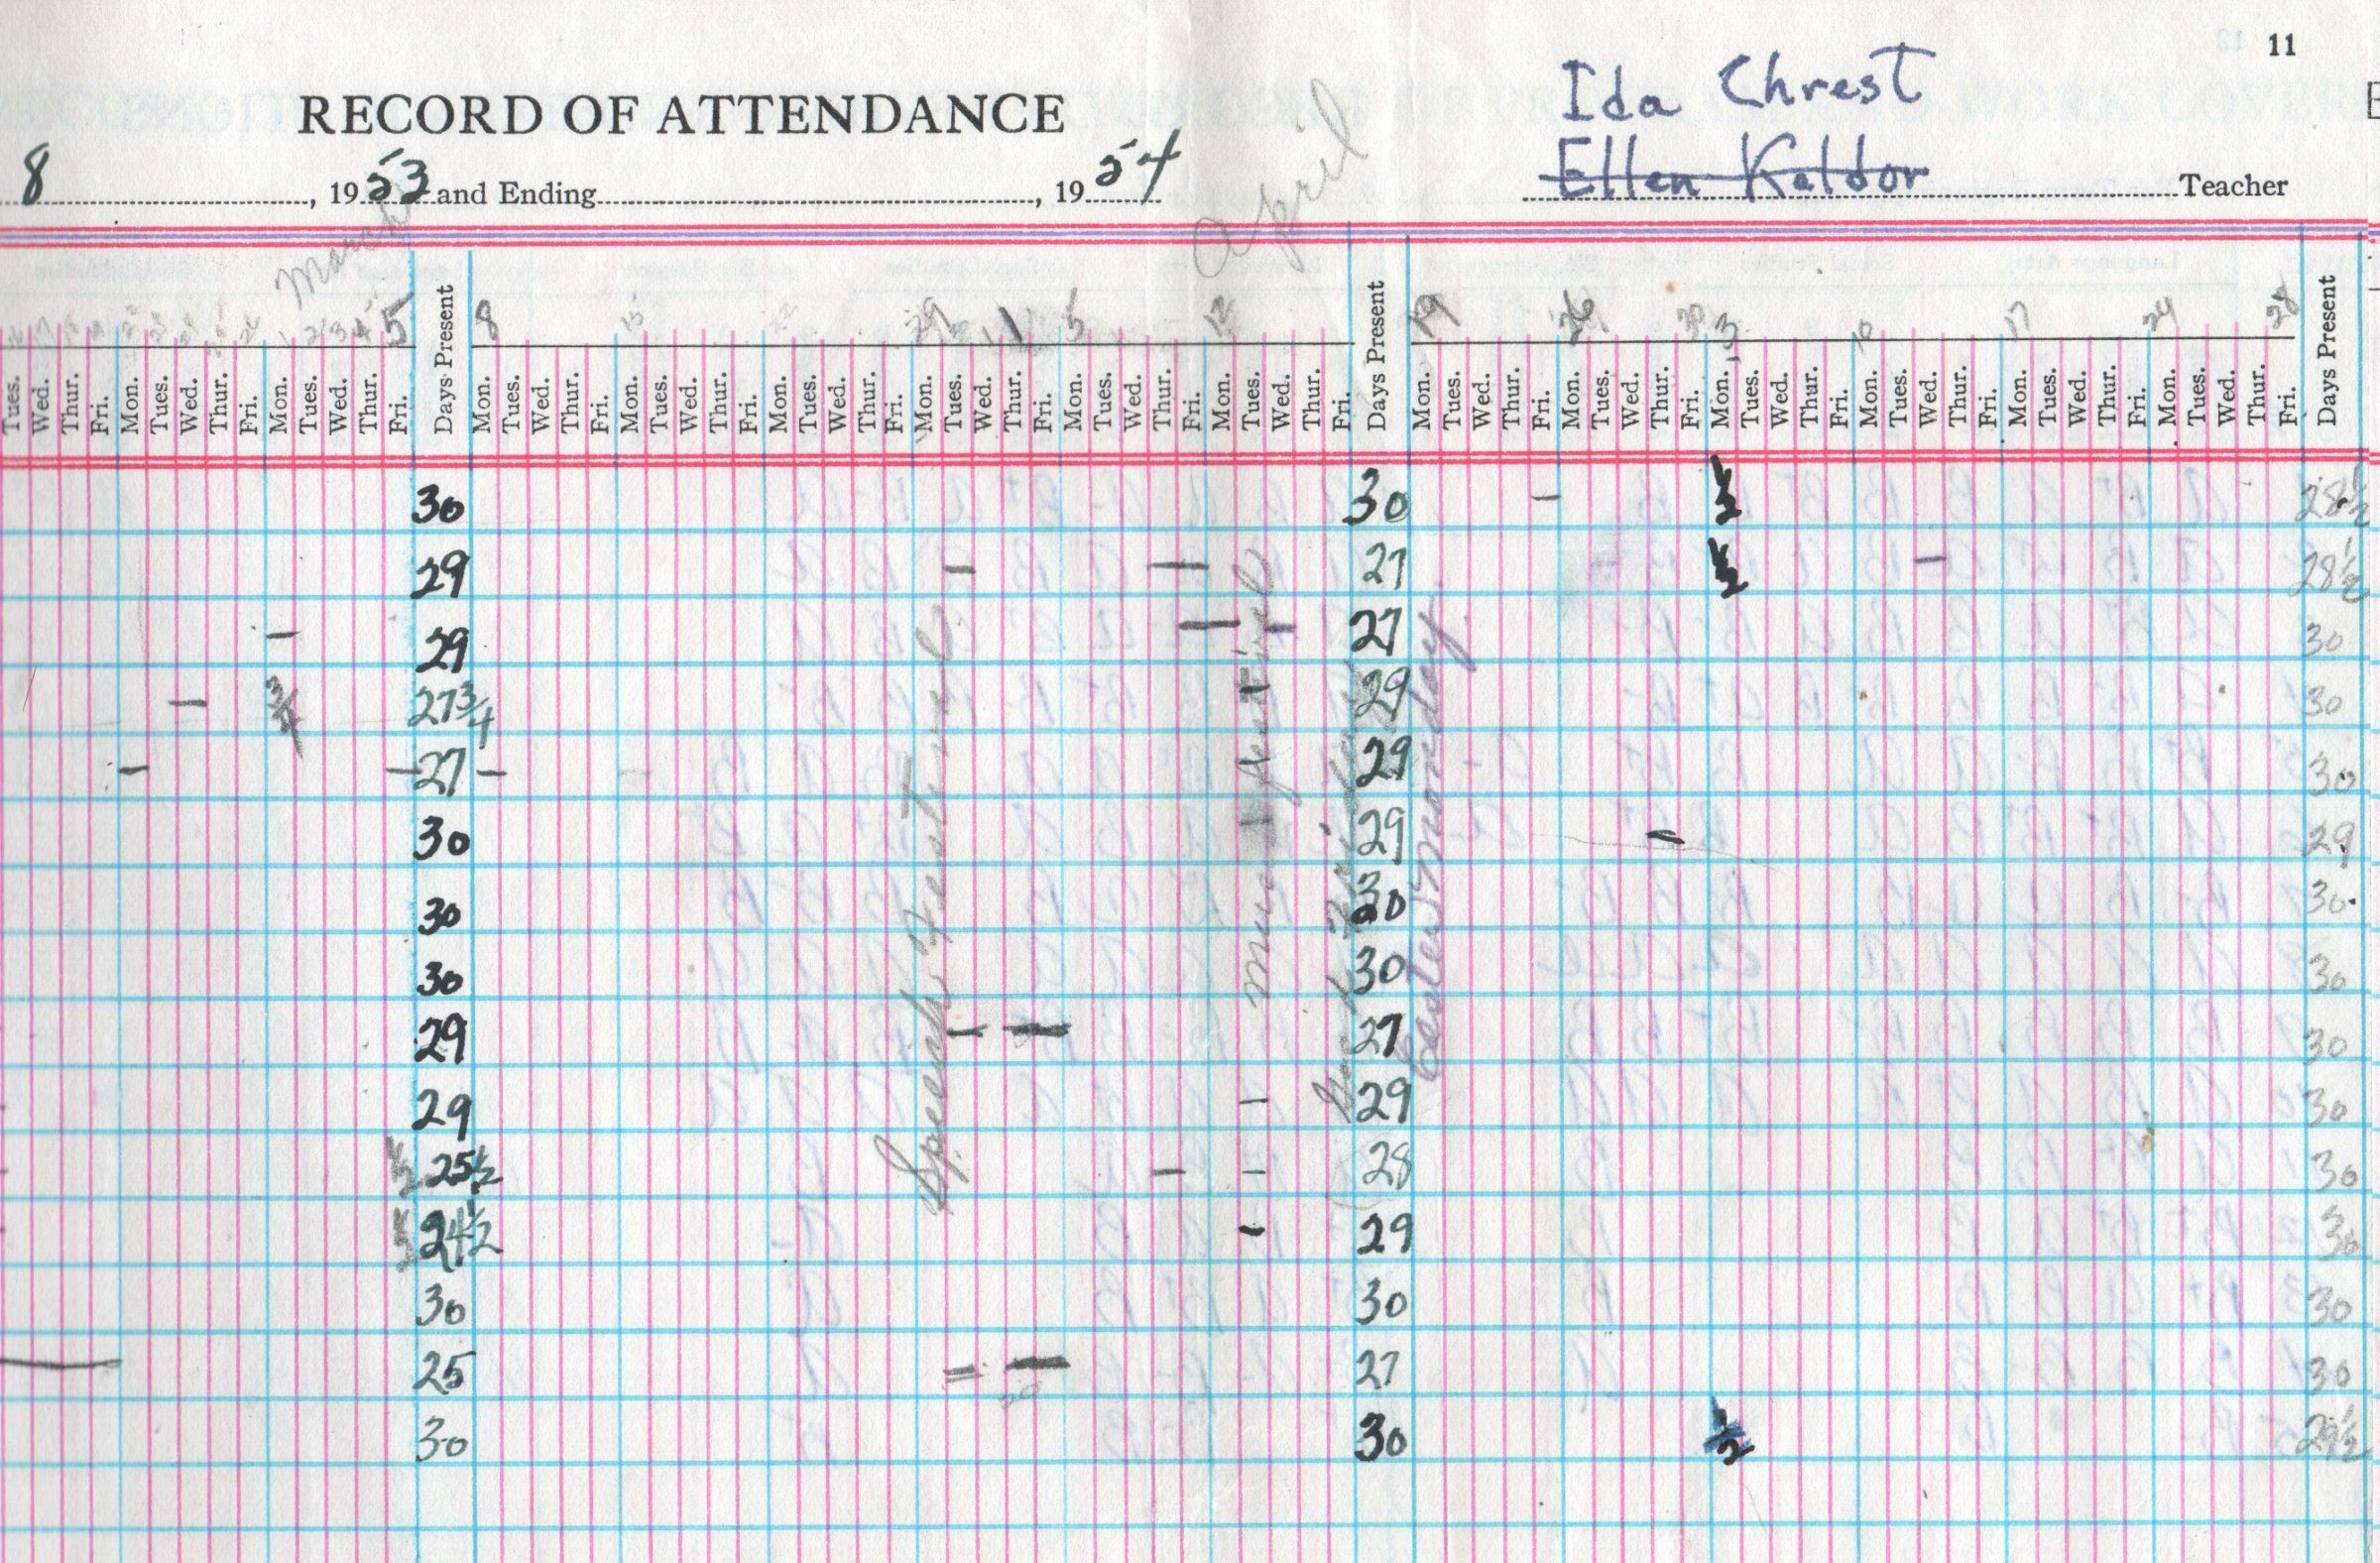 11
Ida Chrest
RECORD OF ATTENDANCE
8, 1953 and Ending, 1954 Ellen Kaldor Teacher
March April
1 2 3 4 5 8 15 29 1 5 12 19 26 3 10 17 24 28
Tues. Wed. Thur. Fri. Mon. Tues. Wed. Thur. Fri. Mon. Tues. Wed. Thur. Fri. Days Present Mon. Tues. Wed. Thur. Fri. Mon. Tues. Wed. Thur. Fri. Mon. Tues. Wed. Thur. Fri. Mon. Tues. Wed. Thur. Fri. Mon. Tues. Wed. Thur. Fri. Mon. Tues. Wed. Thur. Fri. Days Present Mon. Tues. Wed. Thur. Fri. Mon. Tues. Wed. Thur. Fri. Mon. Tues. Wed. Thur. Fri. Mon. Tues. Wed. Thur. Fri. Mon. Tues. Wed. Thur. Fri. Mon. Tues. Wed. Thur. Fri. Days Present
30 30 1/2 28 1/2
29 27 1/2 28 1/2
29 27 30
3/4 27 3/4 29 30
27 29 30
30 29 29
30 30 30
30 30 30
29 27 30
29 29 30
1/2 25 1/2 28 30
1/2 24 1/2 29 30
30 30 30
25 27 30
30 30 1/2 29 1/2
Speech Festival
music festival
Good Friday
Easter Monday